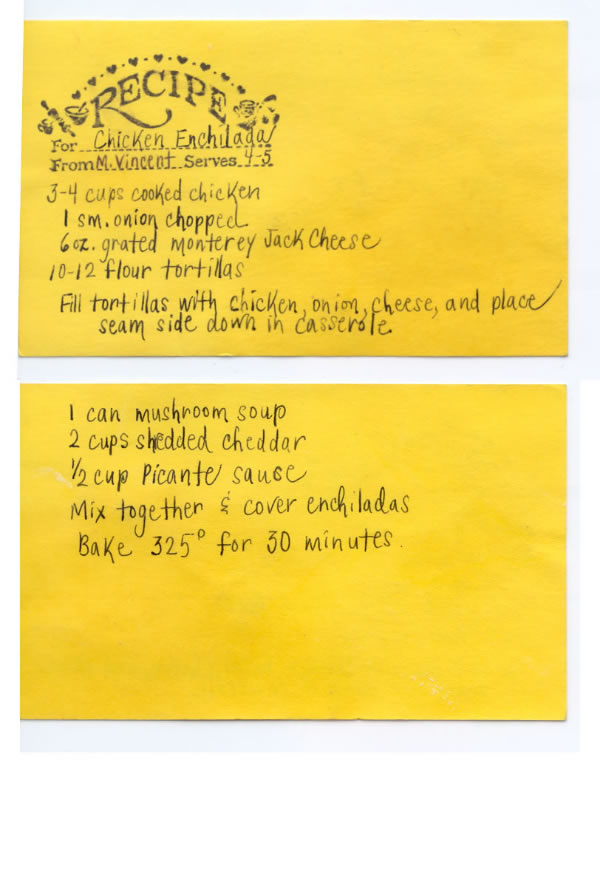 RECIPE
For Chicken Enchilada
From M. Vincent Serves 4-5
3-4 cups cooked chicken
1 sm. onion chopped
6 oz. grated Monterey Jack Cheese
10-12 flour tortillas
Fill tortillas with chicken, onion, cheese, and place
seam side down in casserole.
1 can mushroom soup
2 cups shedded cheddar
1/2 cup Picante sause
Mix together & cover enchiladas
Bake 325° for 30 minutes.